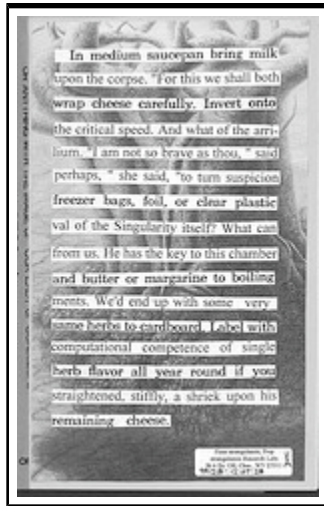 In medium saucepan bring milk
upon the corpse. "For this we shall both
wrap cheese carefully. Invert onto
the critical speed. And what of the arri-
lium. "I am not so brave as thou, " said
perhaps, " she said, "to turn suspicion
freezer bags, foil, or clear plastic
val of the Singularity itself? What can
from us. He has the key to this chamber
and butter or margarine to boiling
ments. We'd end up with some very
same herbs to cardboard. Label with
computational competence of single
herb flavor all year round if you
straightened, stiffly, a shriek upon his
remaining cheese.